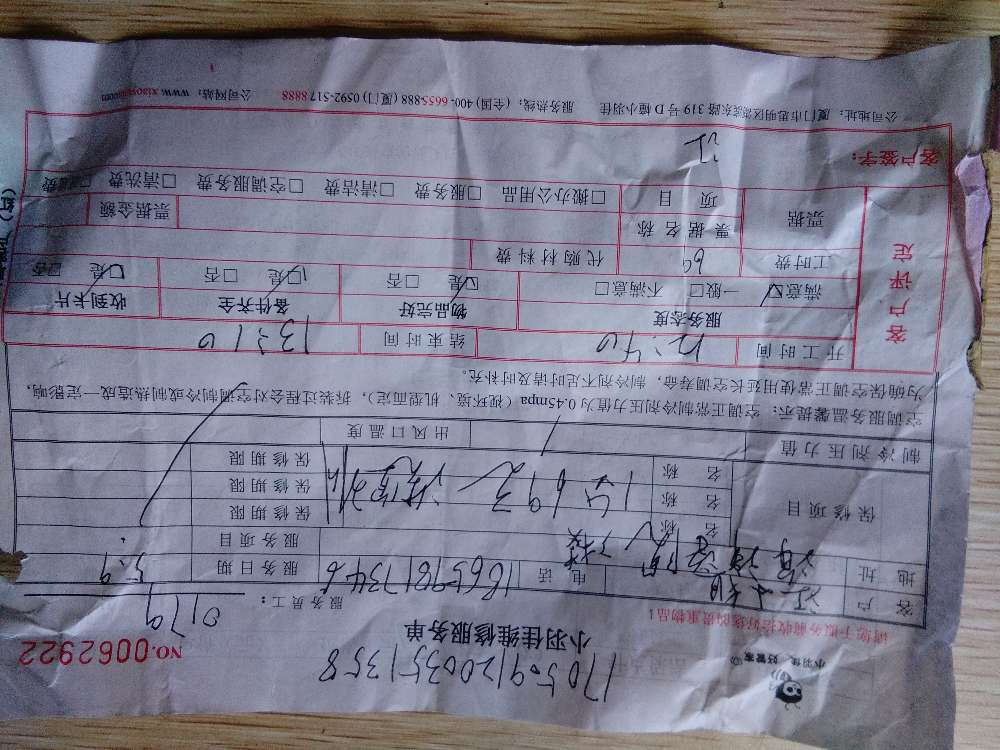 小羽佳 好管家
170509120035 1358
小羽佳维修服务单
NO.0062922
请您于服务前收拾好您的贵重物品！
服务员工：0179
客户 电话 18659817346 服务日期 5.9
地址 服务项目
保修项目 名称 保修期限
名称 保修期限
名称 保修期限
制冷剂压力值 出风口温度
空调服务温馨提示：空调正常制冷剂压力值为0.45mpa（视环境、机型而定），拆装过程会对空调制冷或制热造成一定影响，
为确保空调正常使用延长空调寿命，制冷剂不足时请及时补充。
客户评定
开工时间 12:40 结束时间 13:10
服务态度 物品完好 备件齐全 收到卡片
☑满意 一般□ 不满意□ ☑是 □否 ☑是 □否 ☑是 □否
工时费 69 代购材料费
票据 票据名称 票据金额
项目 □搬办公用品 □服务费 □清洁费 □空调服务费 □清洗费
客户签字：江
公司地址：厦门市思明区湖滨东路319号D幢小羽佳 服务热线：(全国) 400-6655-888 (厦门) 0592-5178888 公司网站：